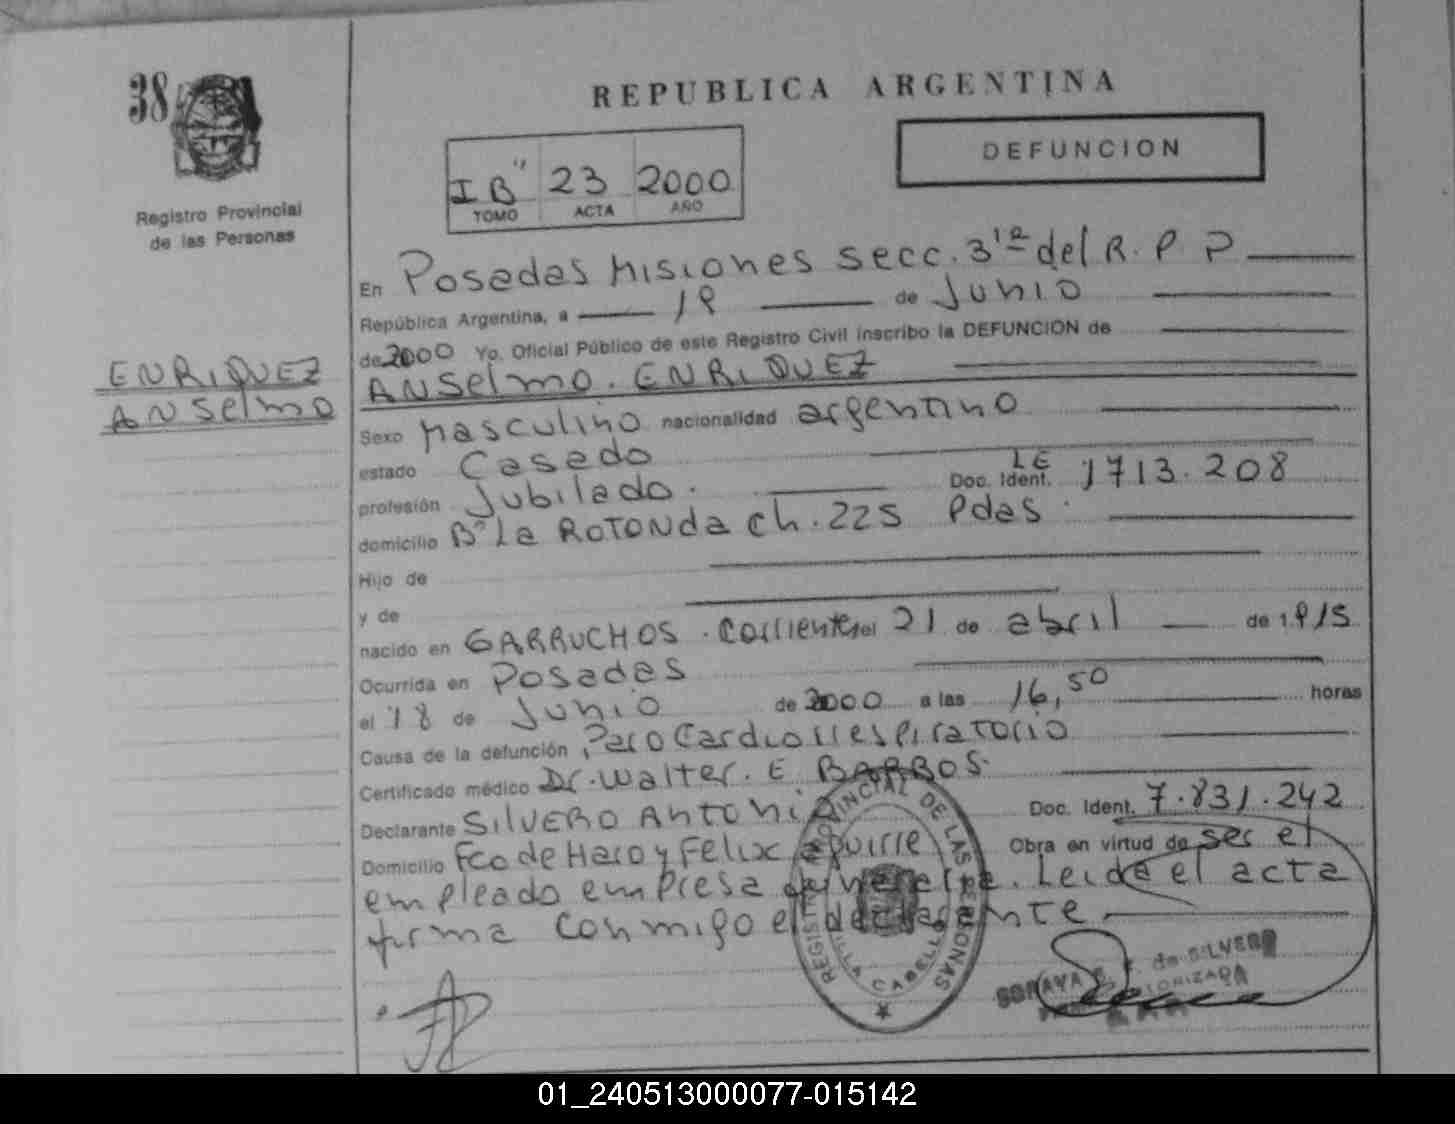 38
Registro Provincial
de las Personas
ENRIQUEZ
ANSelmo
REPUBLICA ARGENTINA
DEFUNCION
IB" 23 2000
TOMO ACTA AÑO
En Posadas Misiones secc. 3ra del R.P P
República Argentina, a 19 de Junio
de 2000 Yo, Oficial Público de este Registro Civil inscribo la DEFUNCION de
ANSelmo. ENRIQUEZ
Sexo Masculino nacionalidad argentino
estado Casado
profesión Jubilado. Doc. Ident. LE 1713.208
domicilio B° La ROTONDA ch. 225 Pdas.
Hijo de
y de
nacido en GARRUCHOS. Corrientes el 21 de abril de 1.915
Ocurrida en Posadas
el 18 de Junio de 2000 a las 16,50 horas
Causa de la defunción Paro Cardiorrespiratorio
Certificado médico Dr. Walter. E BARROS.
Declarante SILVERO ANTONIO Doc. Ident. 7.831.242
Domicilio Fco de Haro y Felix aguirre Obra en virtud de ser el
empleado empresa funebre. Leida el acta
firma conmigo el declarante
REGISTRO PROVINCIAL DE LAS PERSONAS
VILLA CABELLO
SORAYA de SILVERO
01_240513000077-015142